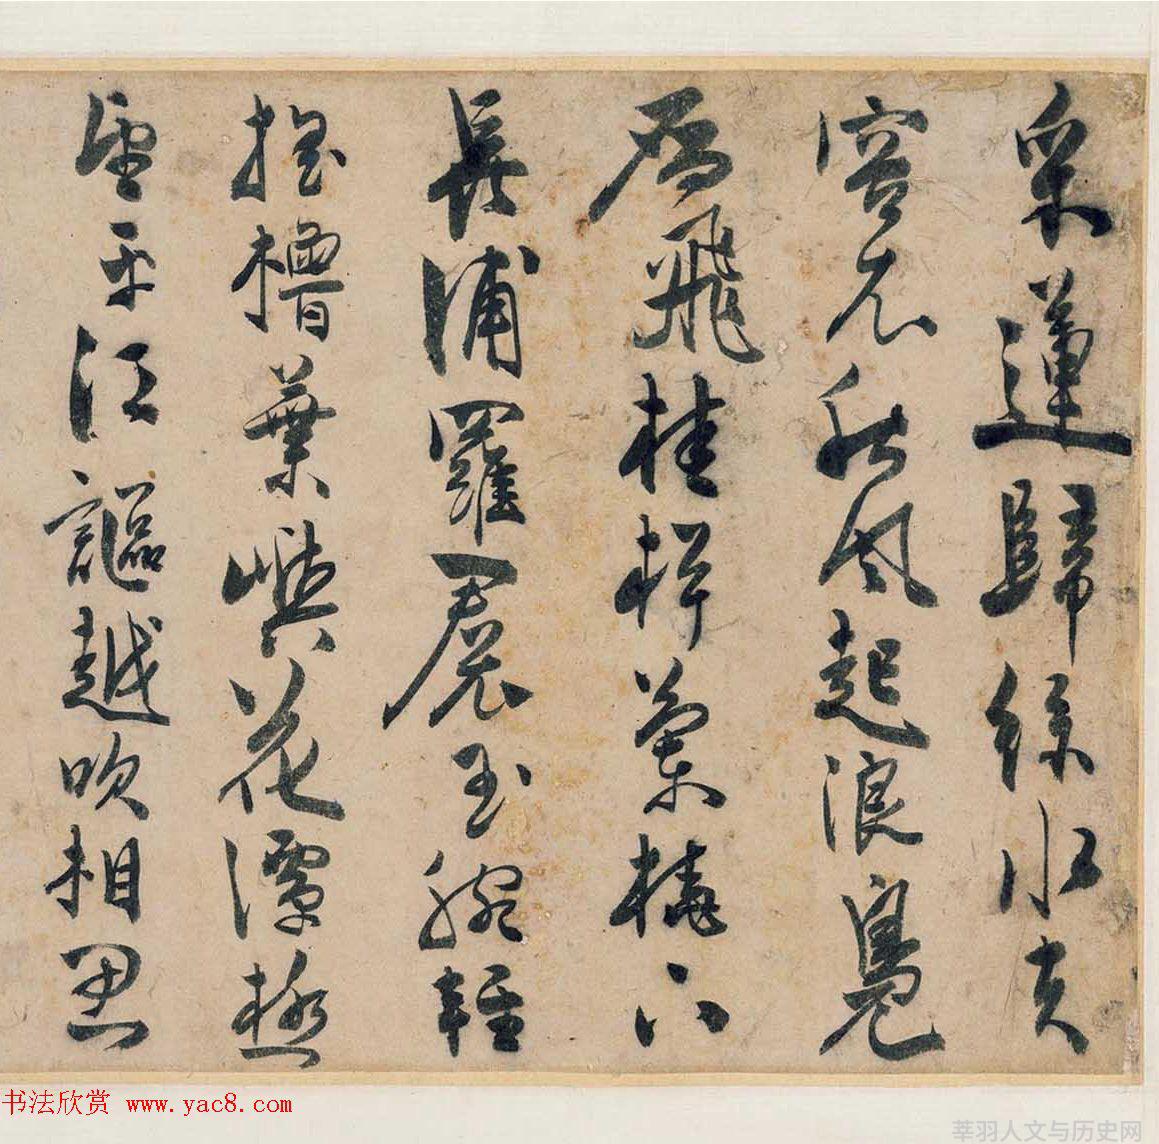 采蓮歸綠水芙
蓉衣秋風起浪鳧
雁飛桂棹蘭橈下
長浦羅裙玉腕輕
搖櫓葉嶼花潭極
望平江謳越吹相思
书法欣赏 www.yac8.com
莘羽人文与历史网